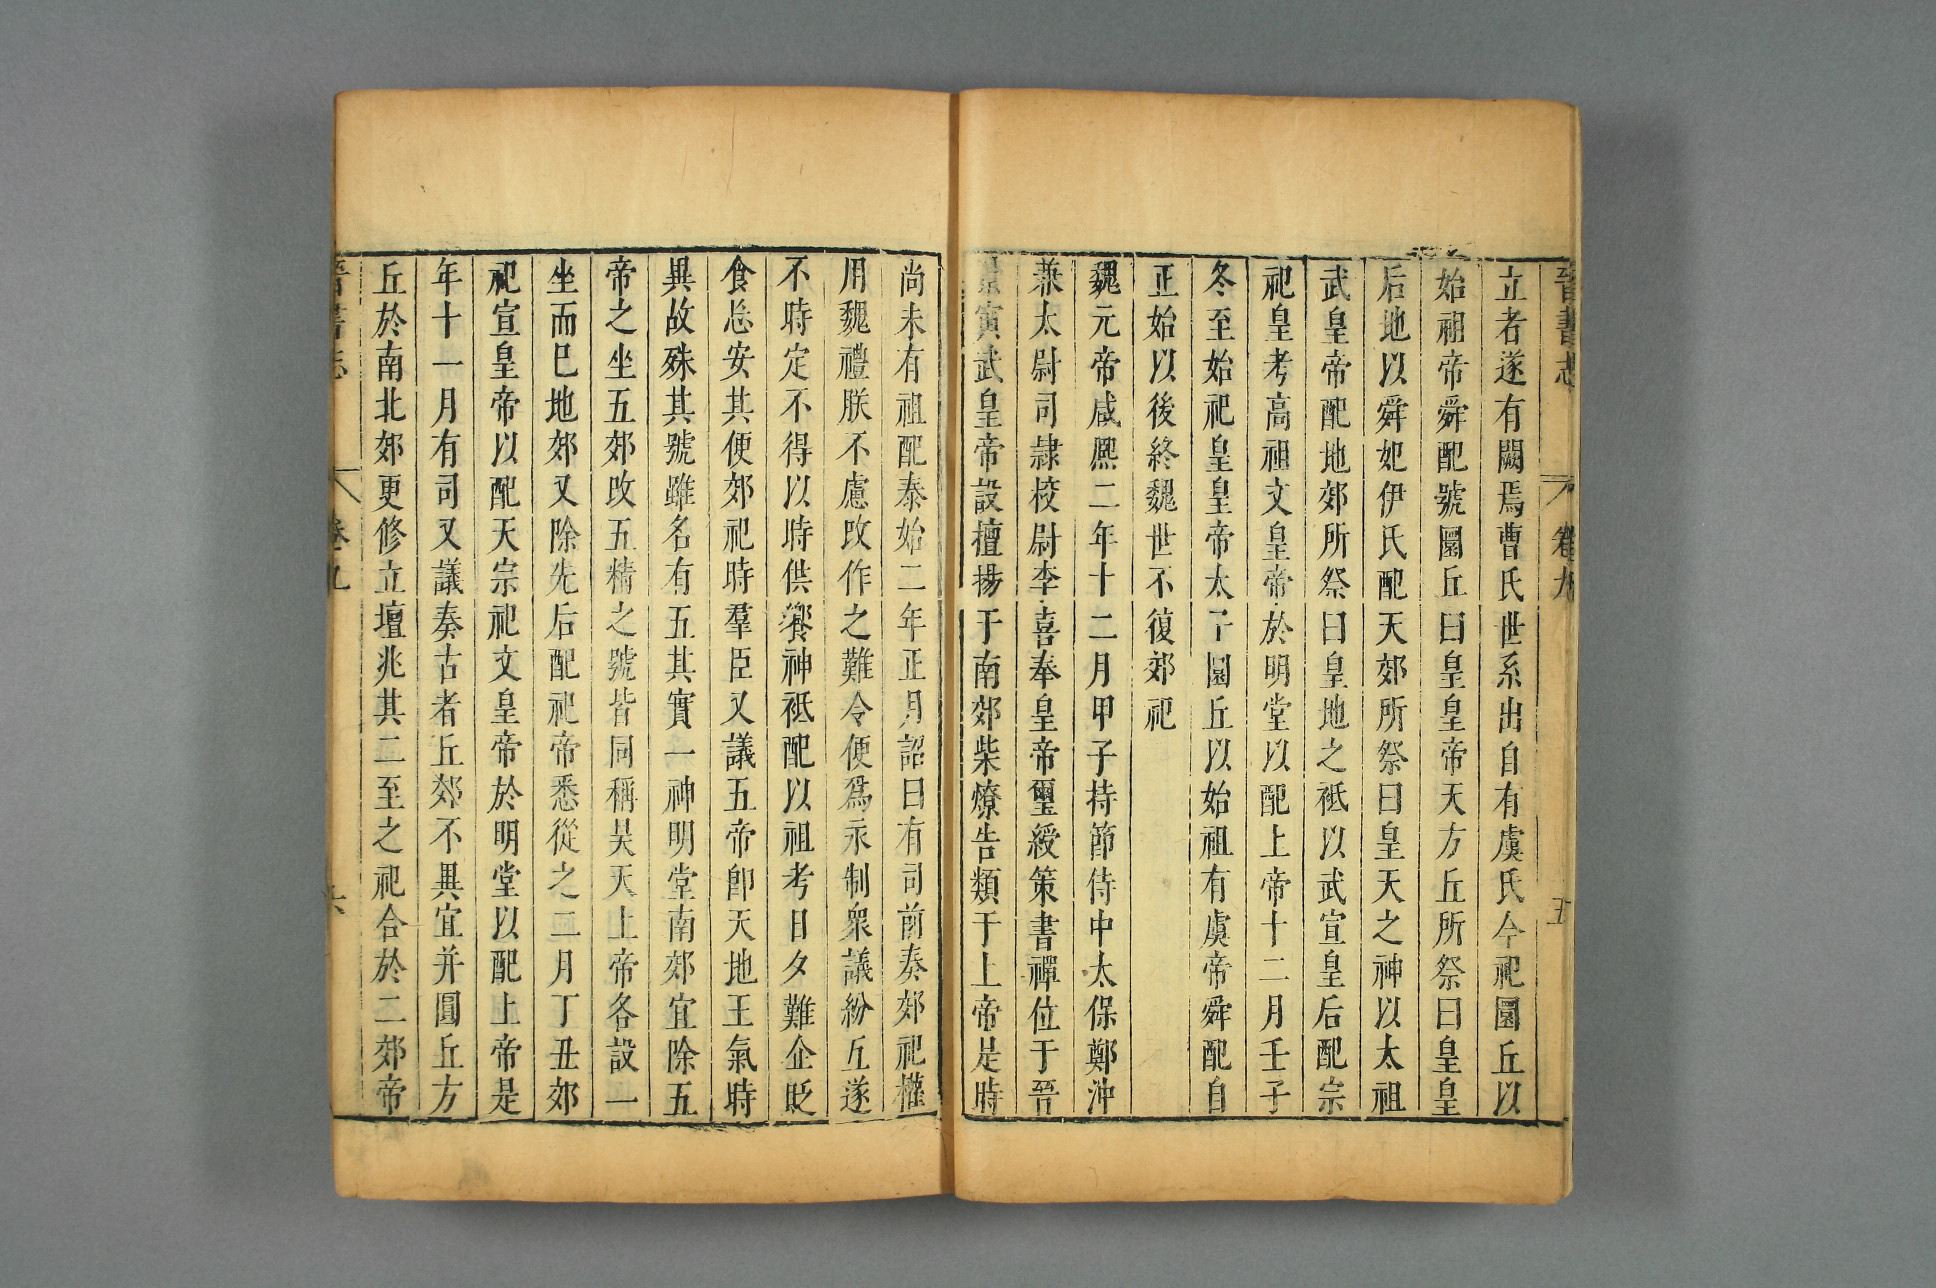 晉書志 卷九 五
立者遂有闕焉曹氏世系出自有虞氏今祀圜丘以
始祖帝舜配號圜丘曰皇皇帝天方丘所祭曰皇皇
后地以舜妃伊氏配天郊所祭曰皇天之神以太祖
武皇帝配地郊所祭曰皇地之祗以武宣皇后配宗
祀皇考高祖文皇帝於明堂以配上帝十二月壬子
冬至始祀皇皇帝太于圜丘以始祖有虞帝舜配自
正始以後終魏世不復郊祀
魏元帝咸熙二年十二月甲子持節侍中太保鄭沖
兼太尉司隷校尉李喜奉皇帝璽綬策書禪位于晉
寅武皇帝設壇揚于南郊柴燎告類于上帝是時
尚未有祖配泰始二年正月詔曰有司前奏郊祀權
用魏禮朕不慮改作之難令便爲永制衆議紛互遂
不時定不得以時供饗神祗配以祖考日夕難企貶
食忘安其便郊祀時羣臣又議五帝卽天地王氣時
異故殊其號雖名有五其實一神明堂南郊宜除五
帝之坐五郊改五精之號皆同稱昊天上帝各設一
坐而巳地郊又除先后配祀帝悉從之二月丁丑郊
祀宣皇帝以配天宗祀文皇帝於明堂以配上帝是
年十一月有司又議奏古者丘郊不異宜并圓丘方
丘於南北郊更修立壇兆其二至之祀合於二郊帝
晉書志 卷九 六